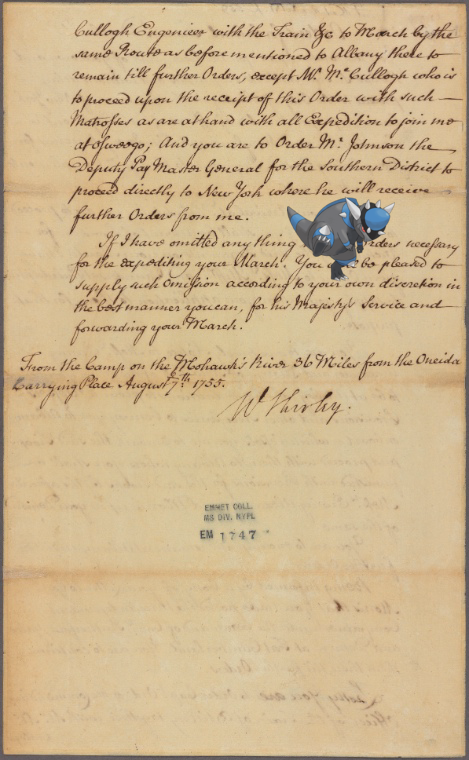 Cullogh Engenieer with the Train &c to March by the
same Route as before mentioned to Albany there to
remain till further Orders, except Mr. McCullogh who is
to proceed upon the receipt of this Order with such
Matrosses as are at hand with all Expedition to join me
at Oswego; And you are to Order Mr. Johnson the
Deputy Pay Master General for the Southern District to
proceed directly to New York where he will receive
further Orders from me.
If I have omitted any thing rders necessary
for the expediting your March. You be pleased to
supply such Omission according to your own discretion in
the best manner you can, for his Majesty's Service and
forwarding your March.
From the Camp on the Mohawk's River 36 Miles from the Oneida
Carrying Place August 7th. 1755.
W Shirley.
EMMET COLL.
MS DIV. NYPL
EM 1747